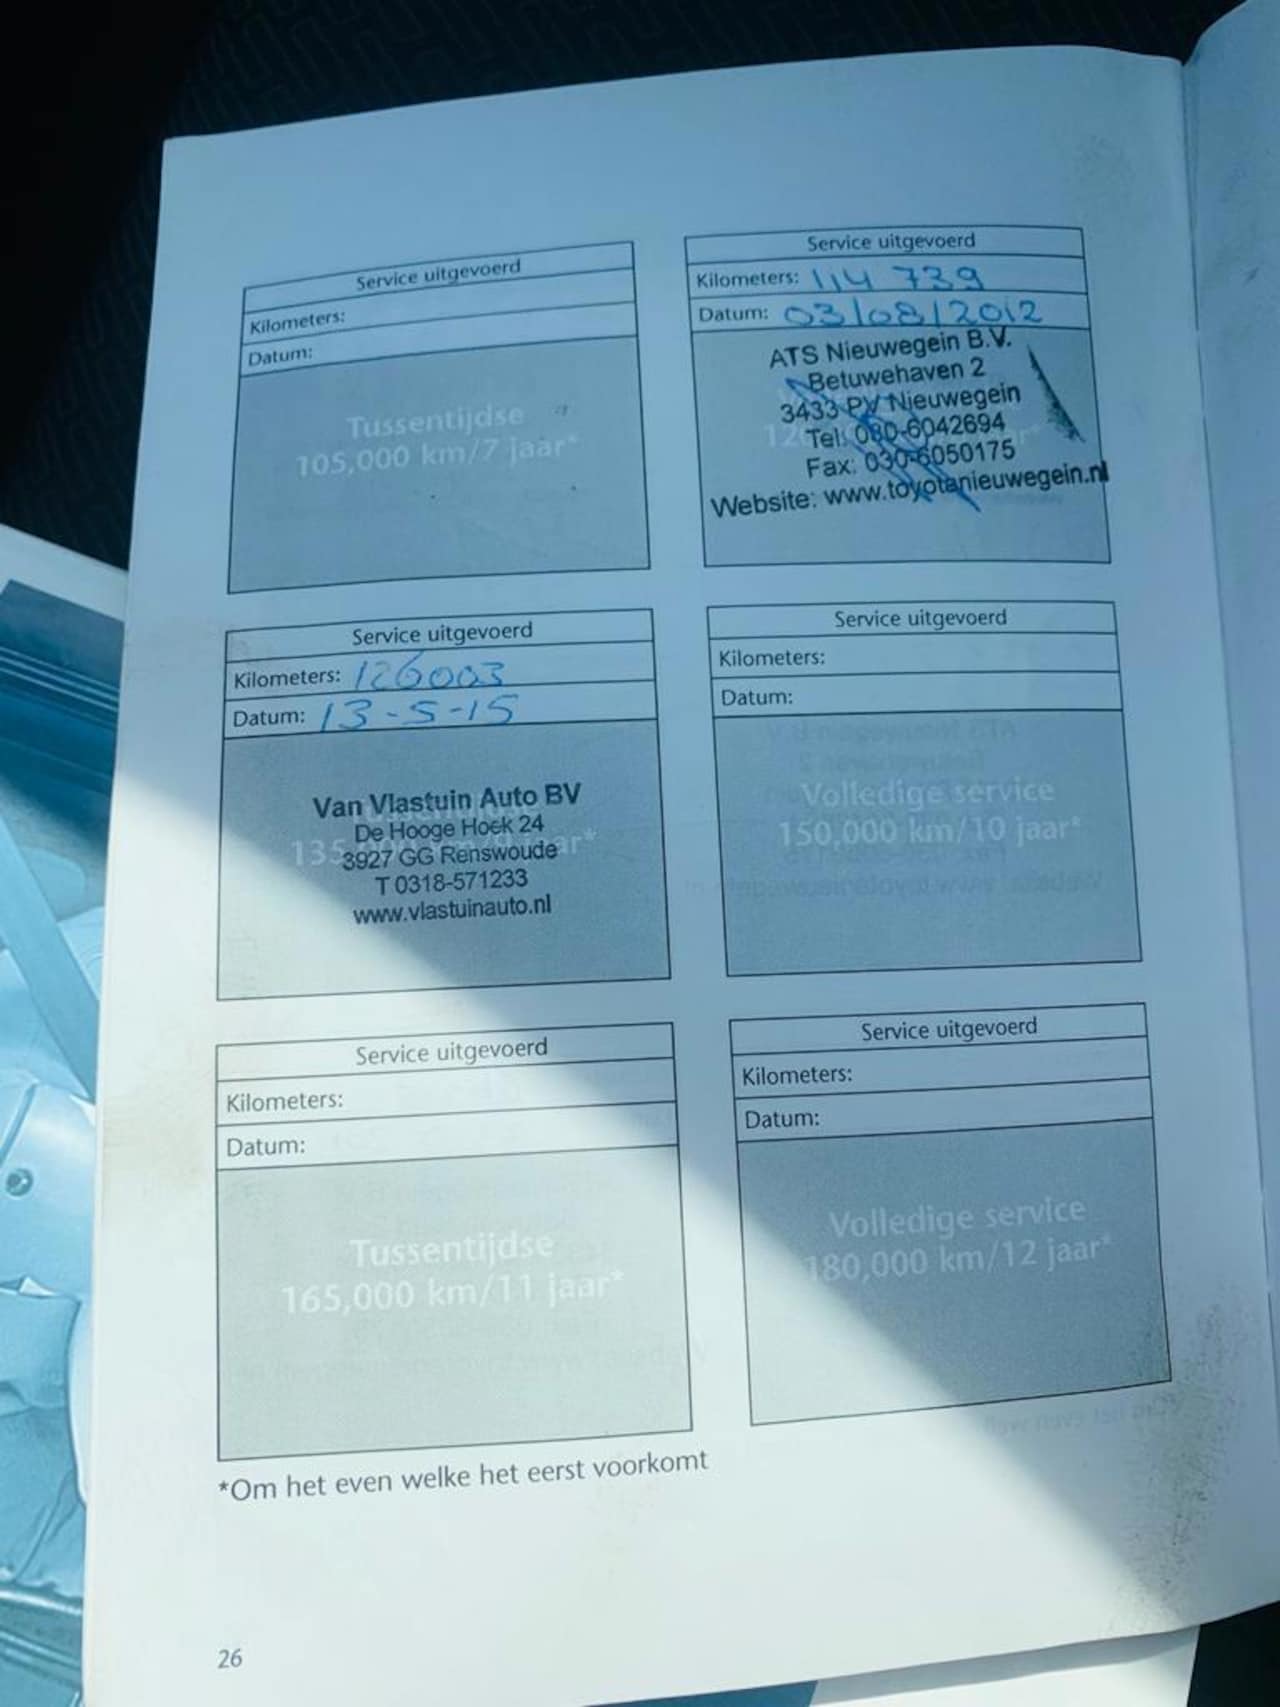 Service uitgevoerd
Kilometers:
Datum:
Tussentijdse
105,000 km/7 jaar*
Service uitgevoerd
Kilometers: 114 739
Datum: 03/08/2012
ATS Nieuwegein B.V.
Betuwehaven 2
3433 PV Nieuwegein
Tel: 030-6042694
Fax: 030-6050175
Website: www.toyotanieuwegein.nl
Service uitgevoerd
Kilometers: 126003
Datum: 13-5-15
Van Vlastuin Auto BV
De Hooge Hoek 24
3927 GG Renswoude
T 0318-571233
www.vlastuinauto.nl
Service uitgevoerd
Kilometers:
Datum:
Volledige service
150,000 km/10 jaar*
Service uitgevoerd
Kilometers:
Datum:
Tussentijdse
165,000 km/11 jaar*
Service uitgevoerd
Kilometers:
Datum:
Volledige service
180,000 km/12 jaar*
*Om het even welke het eerst voorkomt
26